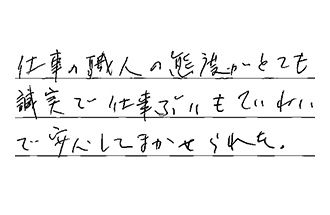 仕事の職人の態度がとても
誠実で仕事ぶりもていねい
で安心してまかせられた。